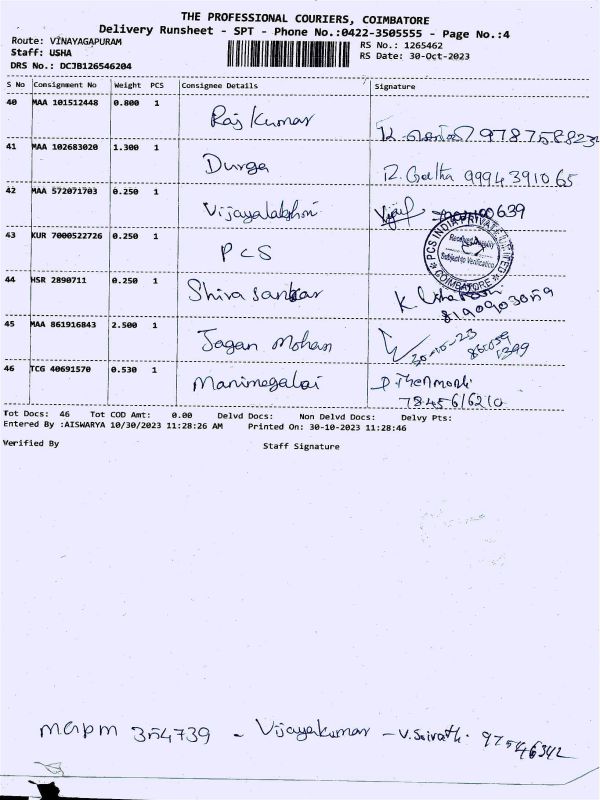 THE PROFESSIONAL COURIERS, COIMBATORE
Delivery Runsheet - SPT - Phone No.:0422-3505555 - Page No.:4
Route: VINAYAGAPURAM
Staff: USHA
DRS No.: DCJB126546204
RS No.: 1265462
RS Date: 30-Oct-2023
S No Consignment No Weight PCS Consignee Details Signature
40 MAA 101512448 0.800 1 Raj Kumar 9787588232
41 MAA 102683020 1.300 1 Durga R. Geetha 9994391065
42 MAA 572071703 0.250 1 Vijayalakshmi 639
43 KUR 7000522726 0.250 1 PCS
PCS INDIA PRIVATE LIMITED
Subject to Verification
COIMBATORE
44 HSR 2890711 0.250 1 Shiva Sankar K 8190903059
45 MAA 861916843 2.500 1 Jagan Mohan 30-10-23
46 TCG 40691570 0.530 1 Manimegalai P. Thenmozhi
7845616210
Tot Docs: 46 Tot COD Amt: 0.00 Delvd Docs: Non Delvd Docs: Delvy Pts:
Entered By :AISWARYA 10/30/2023 11:28:26 AM Printed On: 30-10-2023 11:28:46
Verified By Staff Signature
mapm 354739 - Vijayakumar - V. 97546342